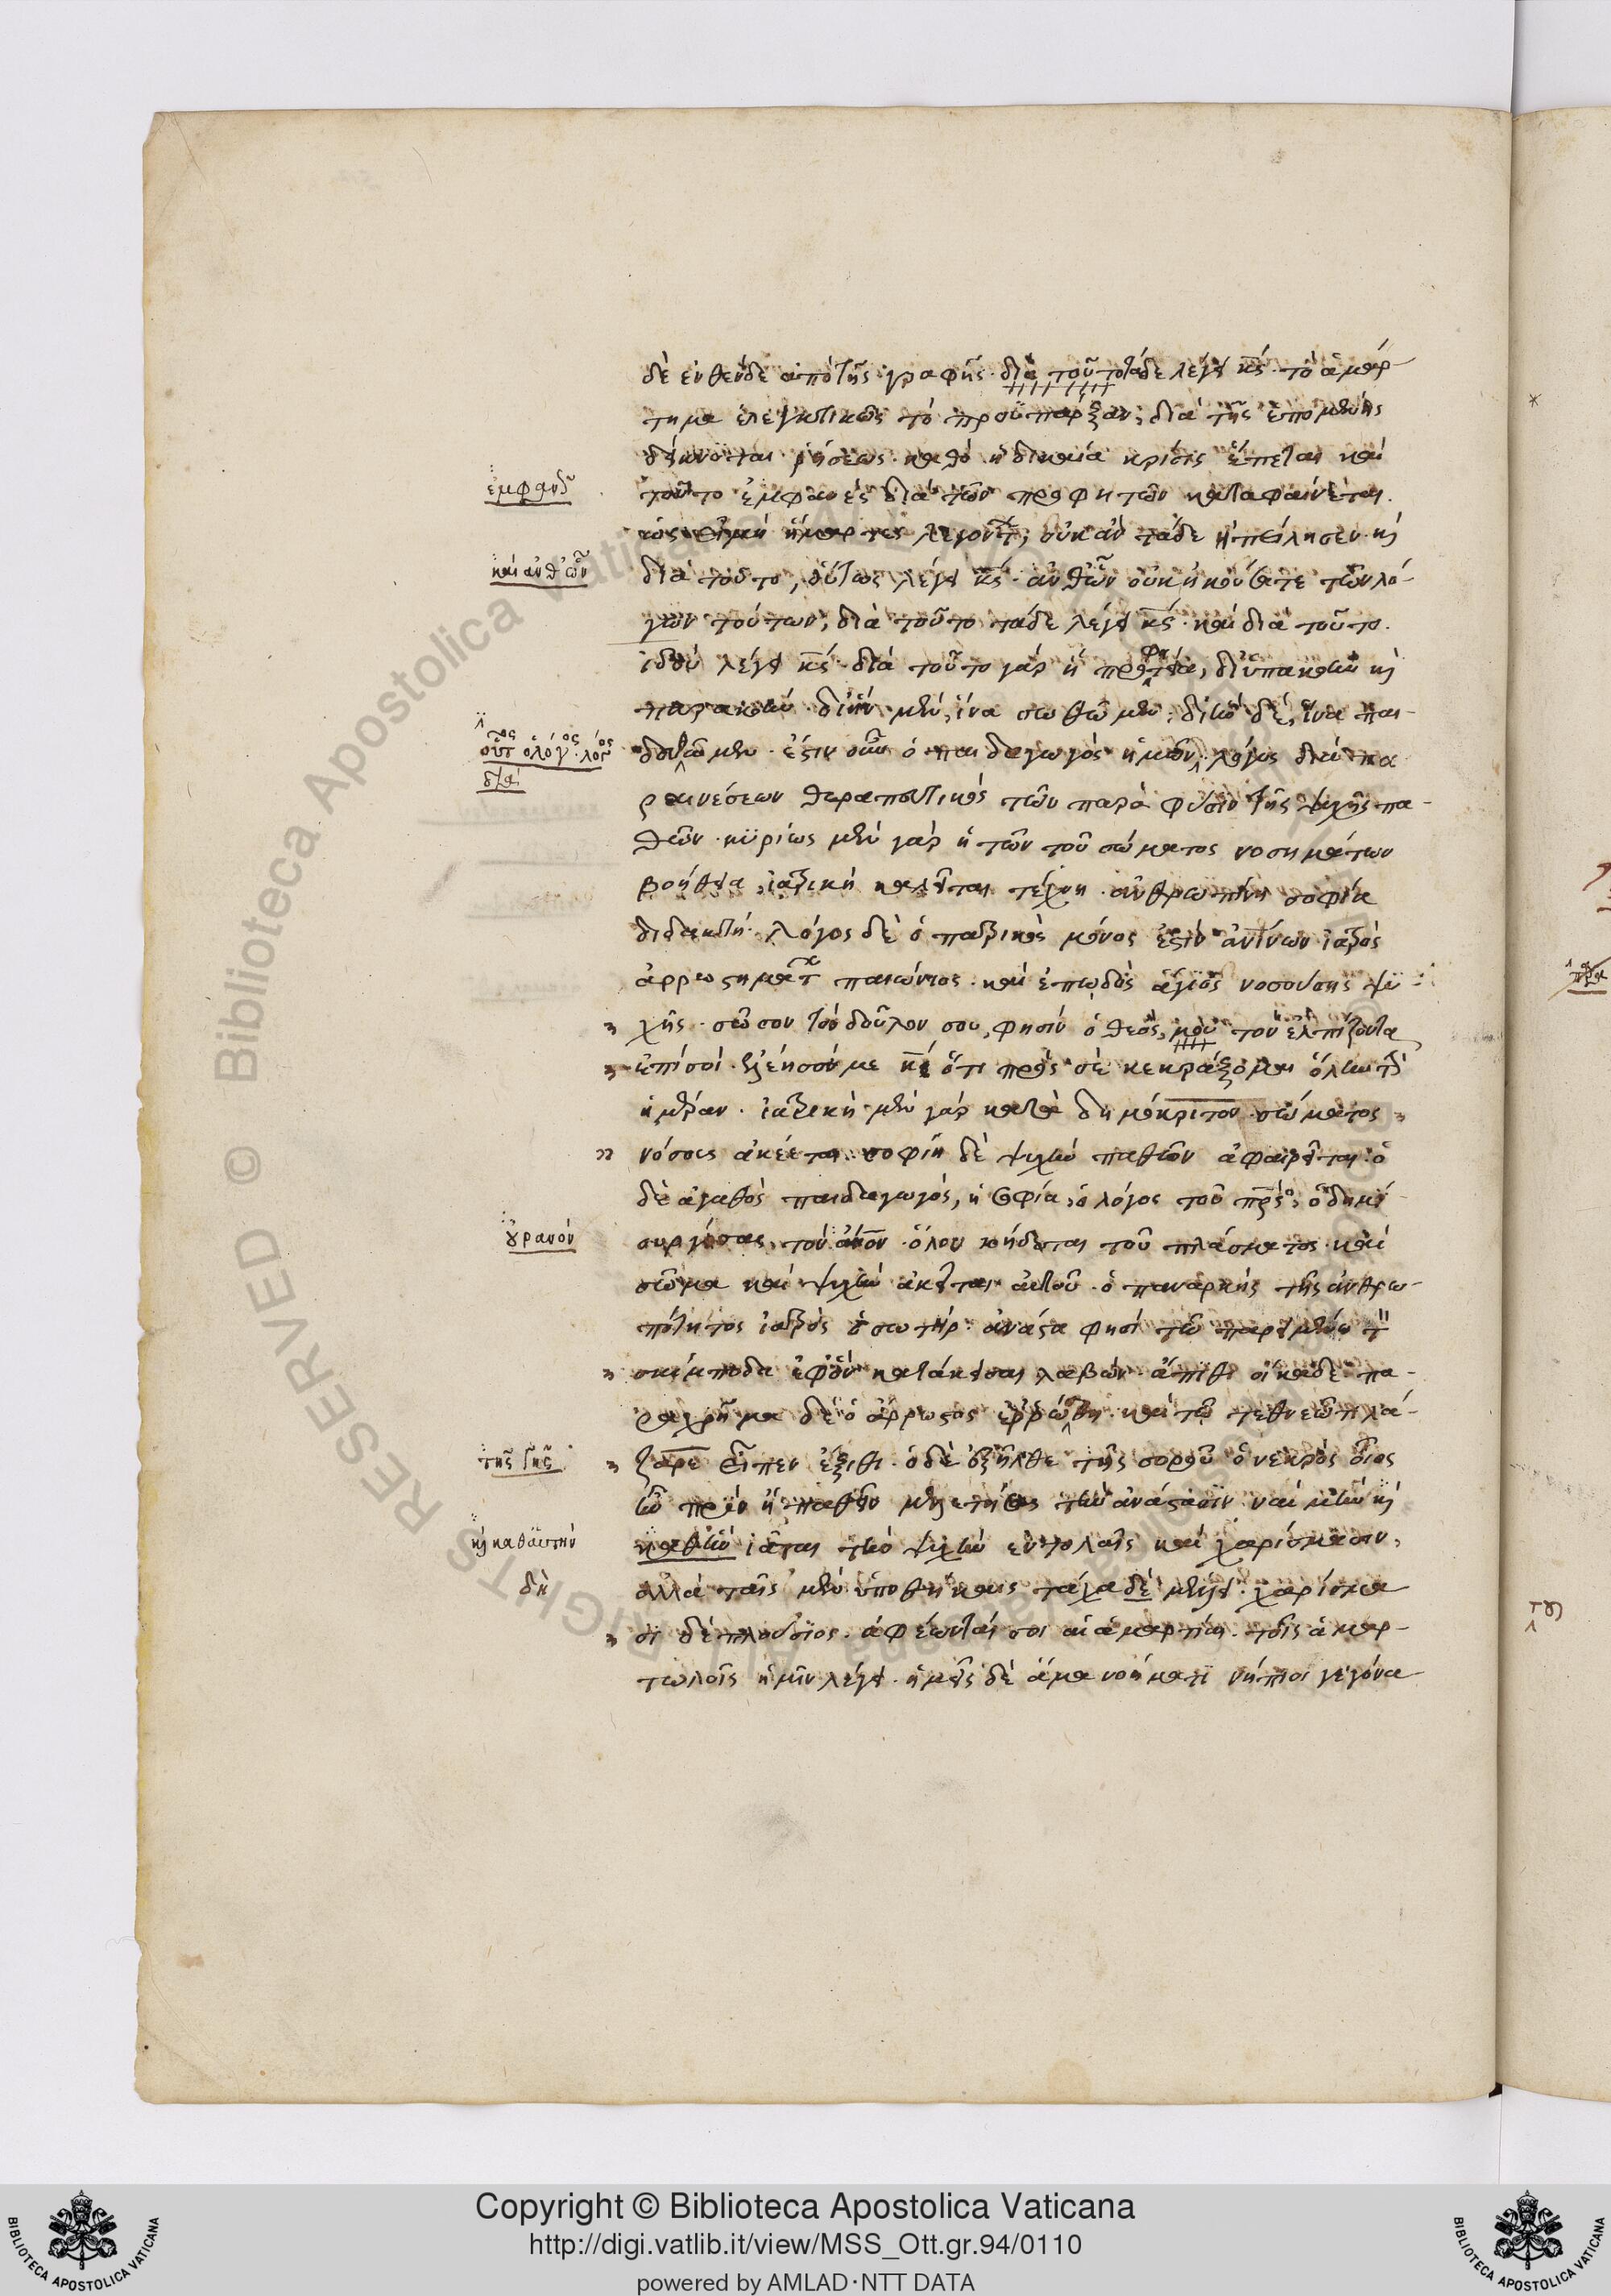 δὲ ἐνθένδε ἀπὸ τῆς γραφῆς· διὰ τοῦτο τάδε λέγει κς· τὸ ἁμάρ-
τημα ἐλεγκτικῶς τὸ προϋπάρξαν, διὰ τῆς ἑπομένης
δείκνυται ῥήσεως· καθὸ ἡ δικαία κρίσις ἕπεται καὶ
ἐμφανῶς
τοῦτο ἐμφανὲς διὰ τῶν προφητῶν καταφαίνεται.
εἰ μὴ ἥμαρτες λεγόντων, οὐκ ἂν τάδε ἠπείλησεν· κὶ
καὶ ἀνθ ὧν
διὰ τοῦτο, οὕτως λέγει κς· ἀνθ ὧν οὐκ ἠκούσατε τῶν λό-
γων τούτων, διὰ τοῦτο τάδε λέγει κς· καὶ διὰ τοῦτο.
ἰδοὺ λέγει κς· διὰ τοῦτο γὰρ ἡ προφητεία, δι ὑπακοὴν κὶ
παρακοήν· δι ἣν μὲν, ἵνα σωθῶμεν· δι ἣν δὲ, ἵνα παι-
οὗτος ὁ λόγος· λόγος
διὰ
δευθῶμεν· ἔστιν οὖν ὁ παιδαγωγὸς ἡμῶν, λόγος διὰ πα
ραινέσεων θεραπευτικὸς τῶν παρὰ φύσιν τῆς ψυχῆς πα-
θῶν· κυρίως μὲν γὰρ ἡ τῶν τοῦ σώματος νοσημάτων
βοήθεια, ἰατρικὴ καλεῖται τέχνη ἀνθρωπίνη σοφία
διδακτή· λόγος δὲ ὁ πατρικὸς μόνος ἐστὶν ἀνίνων ἰατρὸς
ἀρρωστημάτων παιώνιος· καὶ ἐπῳδὸς ἅγιος νοσούσης ψυ
χῆς· σῶσον τὸν δοῦλον σου, φησὶν ὁ θεός, μου τὸν ἐλπίζοντα
ἐπὶ σοί· ἐλέησόν με κε ὅτι πρὸς σὲ κεκράξομαι ὅλην τὴν
ἡμέραν· ἰατρικὴ μὲν γὰρ κατὰ δημόκριτον σώματος
νόσους ἀκέεται· σοφίη δὲ ψυχὴν παθῶν ἀφαιρεῖται· ὁ
δὲ ἀγαθὸς παιδαγωγός, ἡ σοφία, ὁ λόγος τοῦ πρς, ὁ δημι
οὐρανόν
ουργήσας τὸν ἀνον· ὅλου κήδεται τοῦ πλάσματος· καὶ
σῶμα καὶ ψυχὴν ἀκεῖται αὐτοῦ· ὁ παναρκὴς τῆς ἀνθρω-
πότητος ἰατρὸς ὁ σωτήρ· ἀνάστα φησὶ τῷ παρειμένῳ τὸν
σκίμποδα ἐφ ὃν κατάκεισαι λαβὼν ἄπιθι οἴκαδε· πα-
ραχρῆμα δὲ ὁ ἄρρωστος ἐρρώσθη· καὶ τῷ τεθνεῶτι λά-
τῆς γῆς
ζαρε εἶπεν ἔξιθι· ὁ δὲ ἐξῆλθε τῆς σοροῦ ὁ νεκρὸς οἷος
ἦν πρὶν ἢ παθεῖν μελετήσας τὴν ἀνάστασιν· ναὶ μὴν κὶ
κὶ καθ αὑτὴν
καθ αὑτὴν ἰᾶται τὴν ψυχὴν ἐντολαῖς καὶ χαρίσμασιν,
δὴ
ἀλλὰ ταῖς μὲν ὑποθήκαις τάχα δὲ μέλλει· χαρίσμα
σι δὲ πλούσιος· ἀφέωνταί σοι αἱ ἁμαρτίαι· τοῖς ἁμαρ-
τωλοῖς ἡμῖν λέγει· ἡμεῖς δὲ ἅμα νοήματι νήπιοι γεγόνα
Copyright © Biblioteca Apostolica Vaticana
http://digi.vatlib.it/view/MSS_Ott.gr.94/0110
powered by AMLAD·NTT DATA